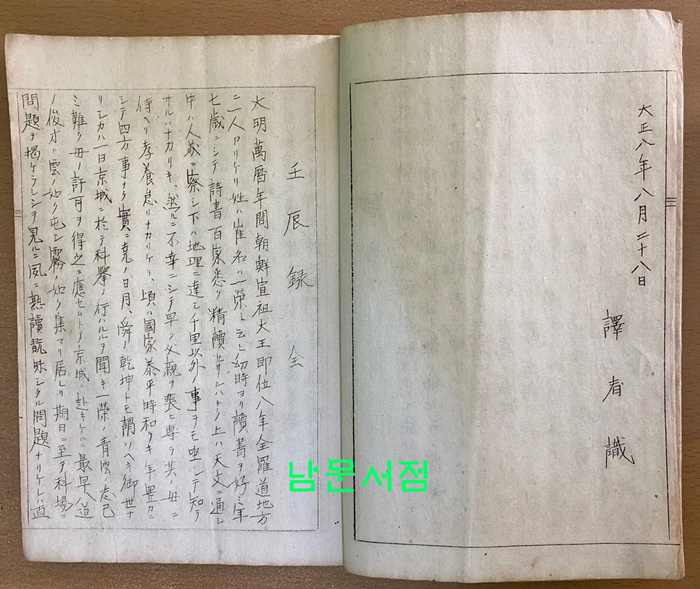 大正八年八月二十八日
譯者識
壬辰録 全
大明萬暦年間朝鮮宣祖大王即位八年全羅道地方
ニ一人アリケリ姓ハ崔名ハ一榮ト云ヒ幼時ヨリ讀書ヲ好ミ年
七歳ニシテ詩書百家悉ク精讀セサルハナク上ハ天文ニ通シ
中ハ人義ヲ察シ下ハ地理ニ達シ千里以外ノ事ヲモ坐シテ知ラ
サルハナカリキ、然ルニ不幸ニシテ早ク父親ヲ喪ヒ專ラ其ノ母ニ
侍ヘリ孝養怠リナカリケリ、頃ハ國家泰平時和ラキ年豊カニ
シテ四方事ナク實ニ堯ノ日月、舜ノ乾坤トモ謂ツヘキ御世ナ
リシカハ一日京城ニ於テ科擧ノ行ハルルヲ聞キ一榮ノ青雲ノ志已
ミ難ク母ノ許可ヲ得之ニ應セントテ京城ニ赴キケルニ最早八道
ノ俊才ハ雲ノ如ク屯シ霧ノ如ク集マリ居レリ期日ニ至テ科場ニ
問題ヲ掲ケラレシヲ見ルニ夙ニ熟讀シタル問題ナリケレハ直
남문서점